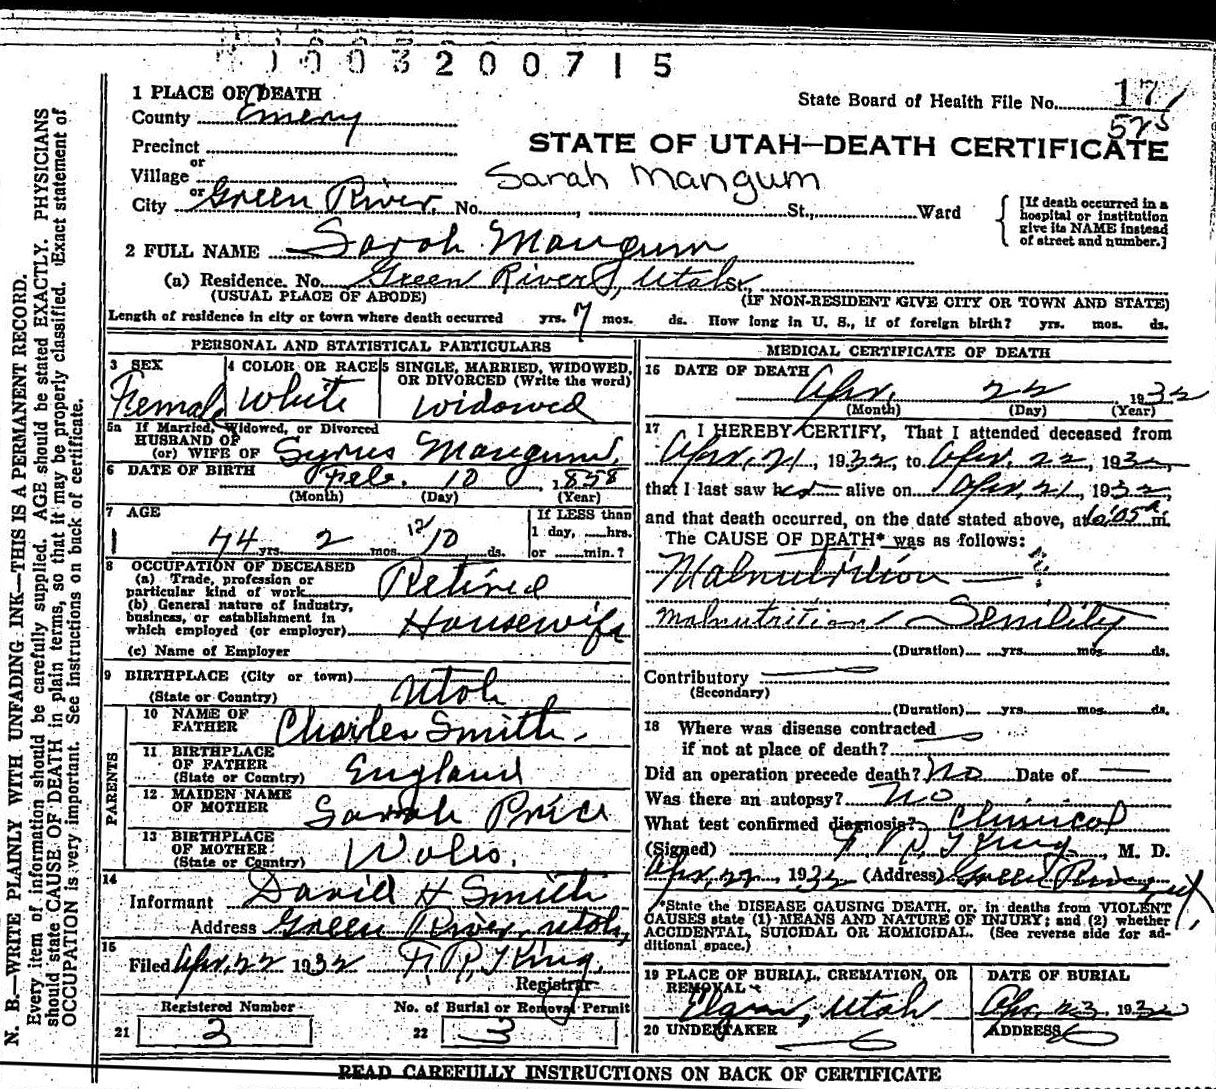 003200715
1 PLACE OF DEATH
County Emery
State Board of Health File No. 17
525
Precinct
or
Village
STATE OF UTAH—DEATH CERTIFICATE
Sarah Mangum
or
City Green River, No. , St., Ward
[If death occurred in a hospital or institution give its NAME instead of street and number.]
2 FULL NAME Sarah Mangum
(a) Residence. No. Green River, Utah St.,
(USUAL PLACE OF ABODE) (IF NON-RESIDENT GIVE CITY OR TOWN AND STATE)
Length of residence in city or town where death occurred yrs. 7 mos. ds. How long in U. S., if of foreign birth? yrs. mos. ds.
PERSONAL AND STATISTICAL PARTICULARS
3 SEX Female
4 COLOR OR RACE White
5 SINGLE, MARRIED, WIDOWED, OR DIVORCED (Write the word)
Widowed
5a If Married, Widowed, or Divorced
HUSBAND OF
(or) WIFE OF Syrus Mangum,
6 DATE OF BIRTH Feb. 10, 1858
(Month) (Day) (Year)
7 AGE
74 yrs. 2 mos. 12 10 ds.
If LESS than
1 day, hrs.
or min.?
8 OCCUPATION OF DECEASED
(a) Trade, profession or
particular kind of work Retired
(b) General nature of industry,
business, or establishment in
which employed (or employer) Housewife
(c) Name of Employer
9 BIRTHPLACE (City or town)
(State or Country) Utah
PARENTS
10 NAME OF
FATHER Charles Smith.
11 BIRTHPLACE
OF FATHER
(State or Country) England
12 MAIDEN NAME
OF MOTHER Sarah Price
13 BIRTHPLACE
OF MOTHER
(State or Country) Wales.
14
Informant David H Smith
Address Green River, Utah,
15
Filed Apr. 22 1932
Registrar
Registered Number No. of Burial or Removal Permit
21 3 22 3
MEDICAL CERTIFICATE OF DEATH
16 DATE OF DEATH
Apr. 22 1932
(Month) (Day) (Year)
17 I HEREBY CERTIFY, That I attended deceased from
Apr. 21, 1932, to Apr. 22, 1932,
that I last saw her alive on Apr. 21, 1932,
and that death occurred, on the date stated above, at m.
The CAUSE OF DEATH* was as follows:
Malnutrition — ?
malnutrition / Senility
(Duration) yrs. mos. ds.
Contributory
(Secondary)
(Duration) yrs. mos. ds.
18 Where was disease contracted
if not at place of death?
Did an operation precede death? No Date of —
Was there an autopsy? No
What test confirmed diagnosis? Clinical
(Signed) , M. D.
Apr. 22, 1932 (Address) Green River, Ut.
*State the DISEASE CAUSING DEATH, or, in deaths from VIOLENT
CAUSES state (1) MEANS AND NATURE OF INJURY; and (2) whether
ACCIDENTAL, SUICIDAL OR HOMICIDAL. (See reverse side for ad-
ditional space.)
19 PLACE OF BURIAL, CREMATION, OR
REMOVAL
Elgin, Utah
DATE OF BURIAL
Apr. 23, 1932
20 UNDERTAKER
ADDRESS
READ CAREFULLY INSTRUCTIONS ON BACK OF CERTIFICATE
N. B.—WRITE PLAINLY WITH UNFADING INK—THIS IS A PERMANENT RECORD.
Every item of information should be carefully supplied. AGE should be stated EXACTLY. PHYSICIANS
should state CAUSE OF DEATH in plain terms, so that it may be properly classified. Exact statement of
OCCUPATION is very important. See instructions on back of certificate.